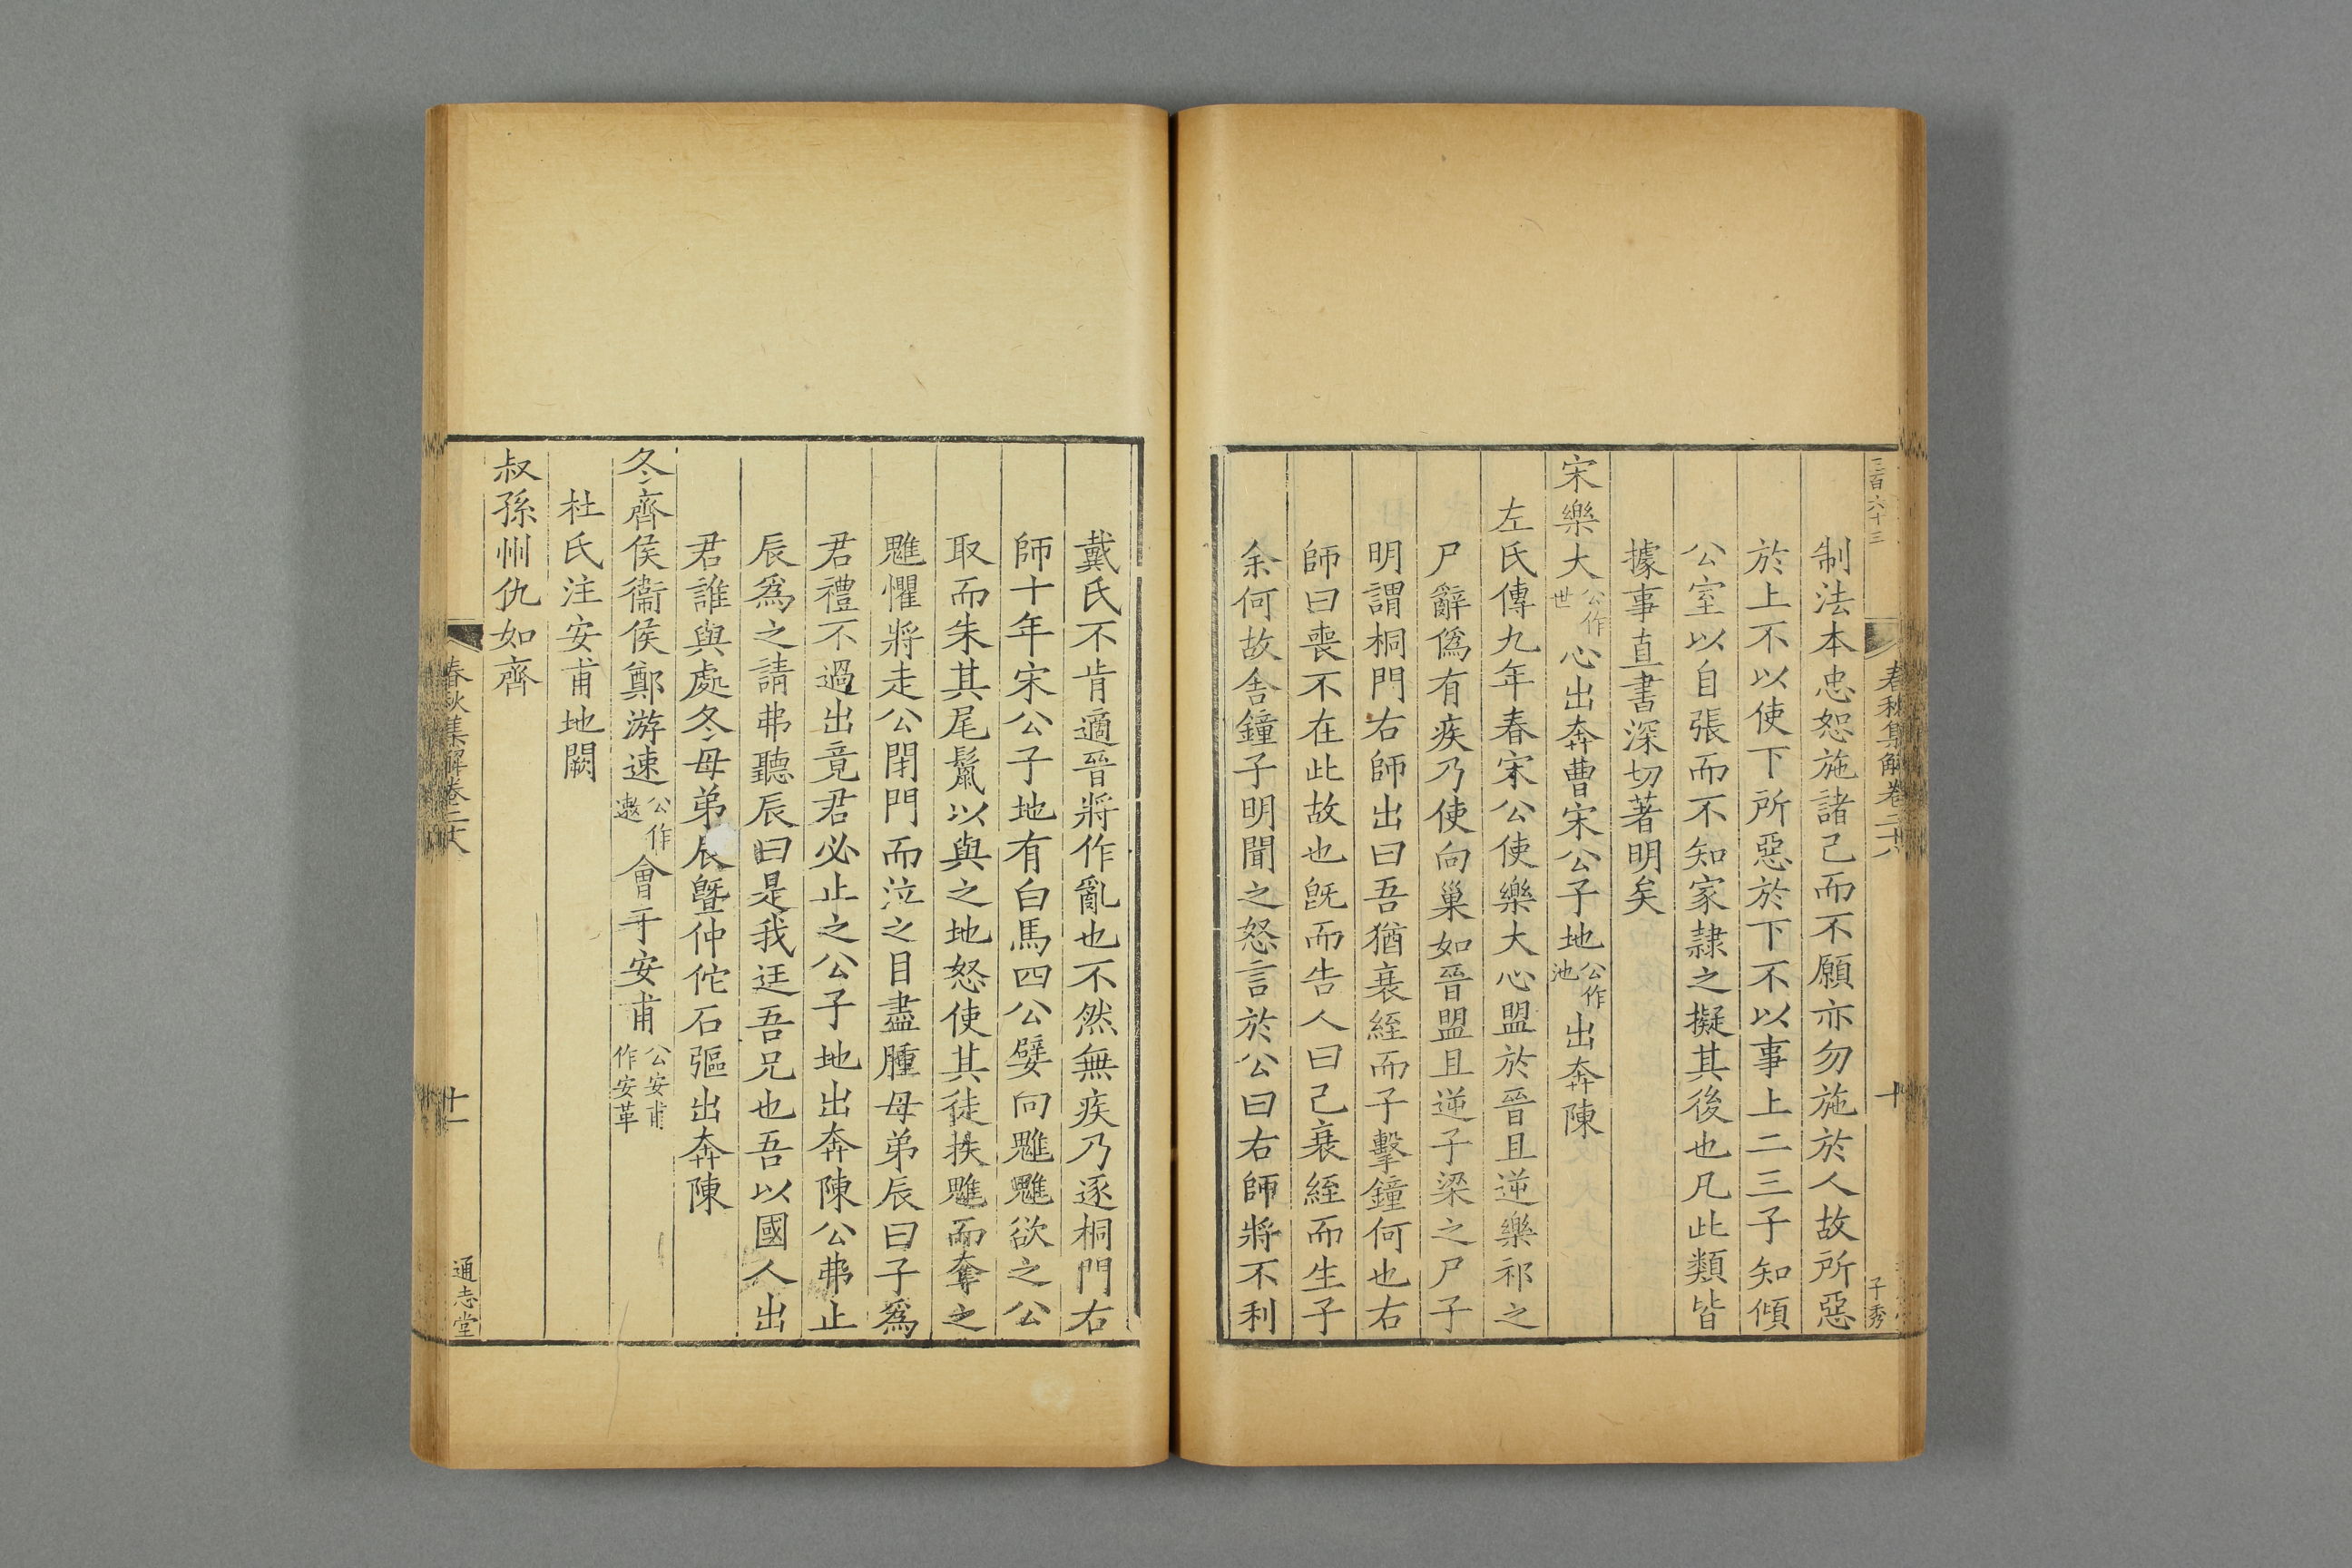 三百六十三
春秋集解卷二十八
十
子秀
制法本忠恕施諸己而不願亦勿施於人故所惡
於上不以使下所惡於下不以事上二三子知傾
公室以自張而不知家隷之擬其後也凡此類皆
據事直書深切著明矣
宋樂大公作世心出奔曹宋公子地公作池出奔陳
左氏傳九年春宋公使樂大心盟於晉且逆樂祁之
尸辭偽有疾乃使向巢如晉盟且逆子梁之尸子
明謂桐門右師出曰吾猶衰絰而子擊鐘何也右
師曰喪不在此故也旣而告人曰己衰絰而生子
余何故舍鐘子明聞之怒言於公曰右師將不利
戴氏不肯適晉將作亂也不然無疾乃逐桐門右
師十年宋公子地有白馬四公嬖向魋魋欲之公
取而朱其尾鬛以與之地怒使其徒抶魋而奪之
魋懼將走公閉門而泣之目盡腫母弟辰曰子爲
君禮不過出竟君必止之公子地出奔陳公弗止
辰爲之請弗聽辰曰是我迋吾兄也吾以國人出
君誰與處冬母弟辰曁仲佗石彄出奔陳
冬齊侯衞侯鄭游速公作遬會于安甫公安甫作安革
杜氏注安甫地闕
叔孫州仇如齊
春秋集解卷二十八
十一
通志堂